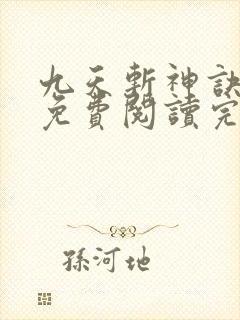 九天斬神訣
免費閱讀完
孫河地